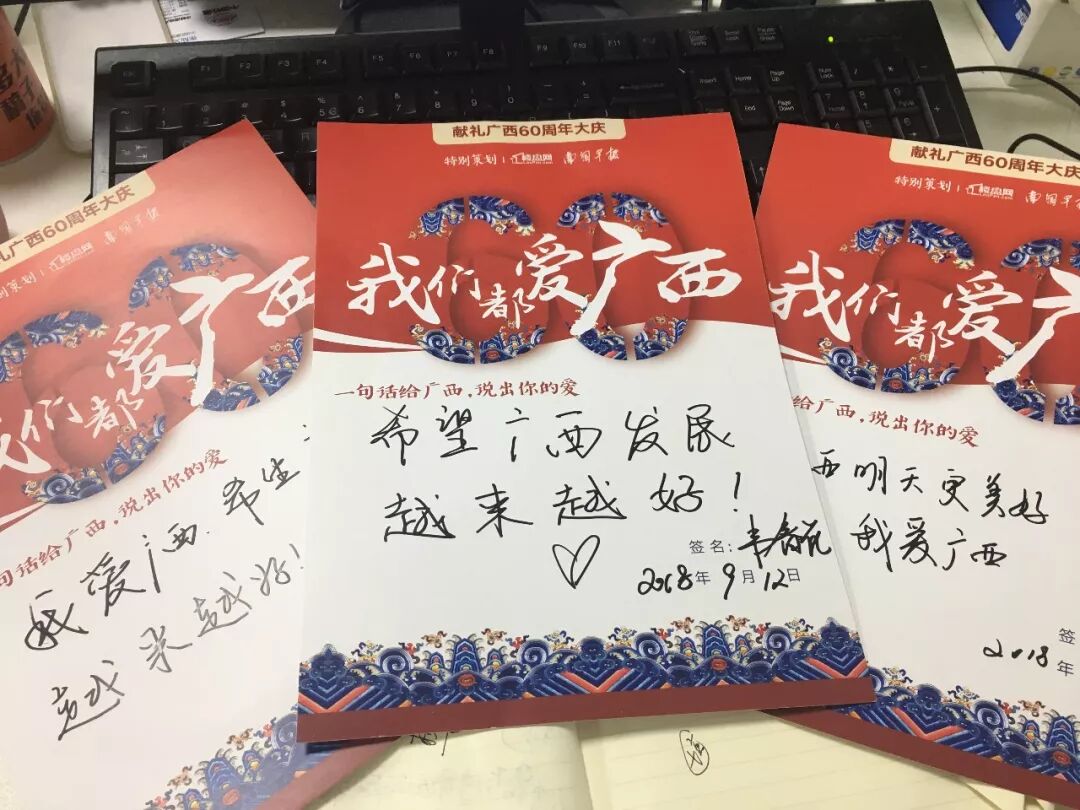 礼广西60周年大庆
别策划 | 楼盘网 南国早报
我们都爱广西
句话给广西，说出你的爱
我爱广西.希
越来越好！
献礼广西60周年大庆
特别策划 | 楼盘网 南国早报
我们都爱广西
一句话给广西，说出你的爱
希望广西发展
越来越好！
签名：韦春
2018年9月12日
献礼广西60周年大庆
特别策划 | 楼盘网 南国早
我们都爱广
给广西，说出你的爱
西明天更美好
我爱广西
签
2018年